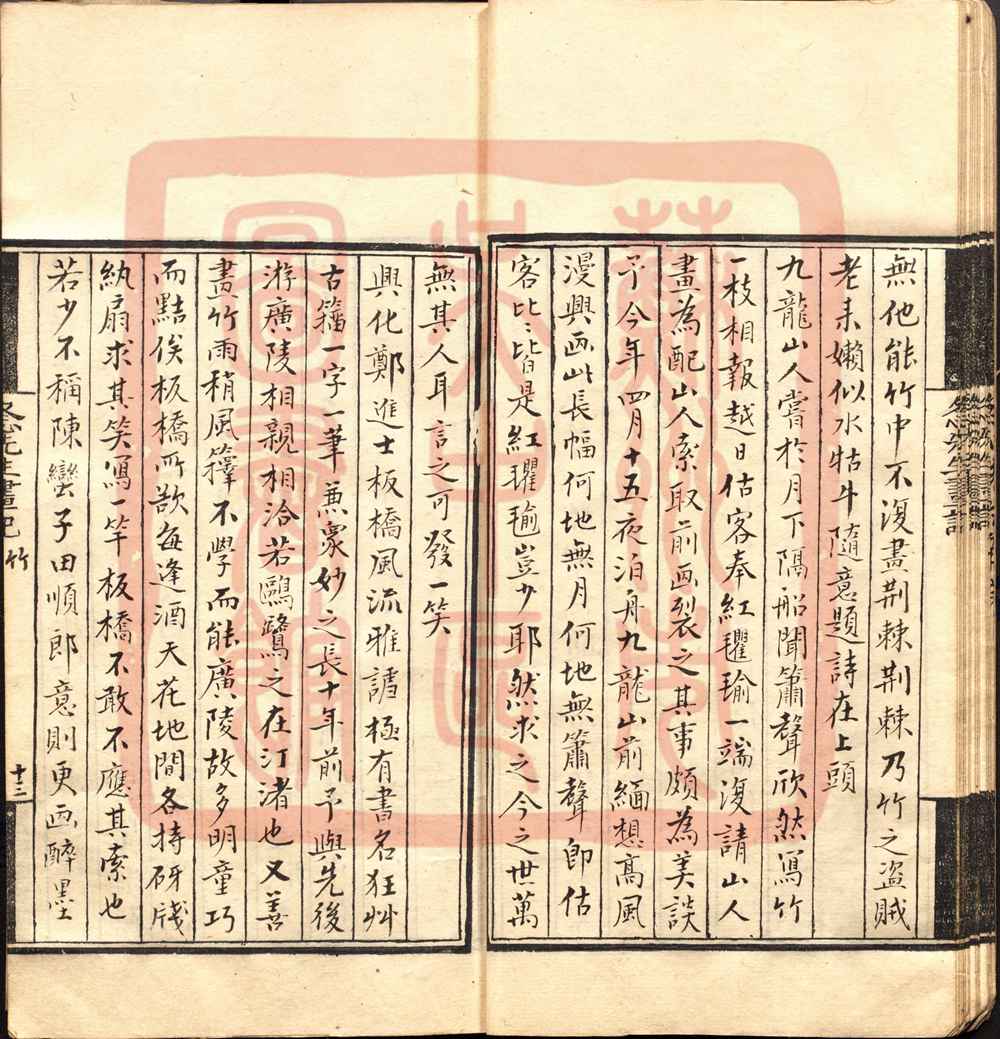 無他能竹中不復畫荆棘荆棘乃竹之盗賊
老耒嬾似水牯牛隨意題詩在上頭
九龍山人嘗於月下隔船聞簫聲欣然寫竹
一枝相報越日估客奉紅氍毹一端復請山人
畫為配山人索取前画裂之其事頗為美談
予今年四月十五夜泊舟九龍山前緬想高風
漫興画此長幅何地無月何地無簫聲即估
客比〻皆是紅氍毹豈少耶然求之今之世萬
無其人耳言之可發一笑
興化鄭進士板橋風流雅謔極有書名狂艸
古籀一字一筆兼衆妙之長十年前予與先後
游廣陵相親相洽若鷗鷺之在汀渚也又善
畫竹雨稍風籜不學而能廣陵故多明童巧
而黠俟板橋所欲每逢酒天花地間各持砑牋
紈扇求其笑寫一竿板橋不敢不應其索也
若少不稱陳蠻子田順郎意則更画醉墨
冬心先生畫記 竹
十二